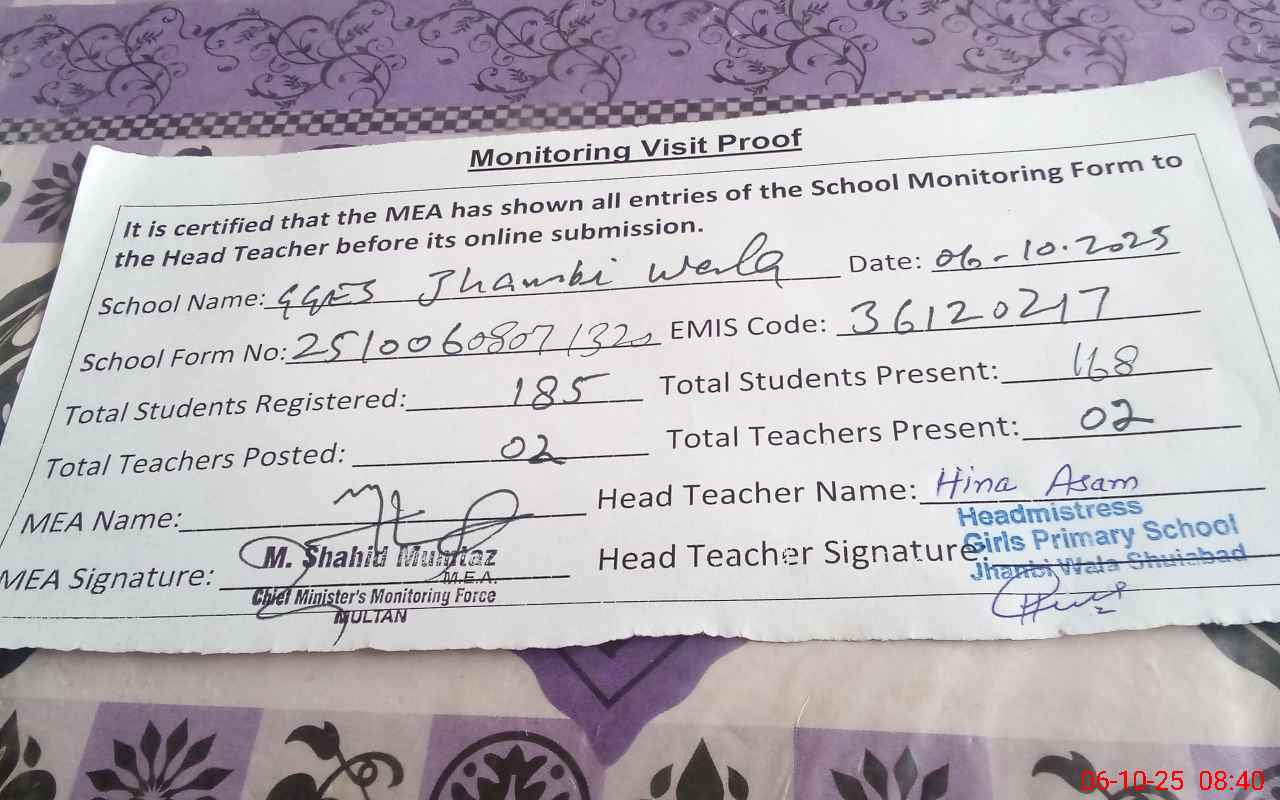 Monitoring Visit Proof
It is certified that the MEA has shown all entries of the School Monitoring Form to
the Head Teacher before its online submission.
School Name: GGES Jhambi Wala Date: 06-10.2025
School Form No: 25100608071320 EMIS Code: 36120217
Total Students Registered: 185 Total Students Present: 168
Total Teachers Posted: 02 Total Teachers Present: 02
MEA Name: Head Teacher Name: Hina Asam
Headmistress
M. Shahid Mumtaz
Girls Primary School
MEA Signature: Head Teacher Signature:
M.E.A.
Jhanbi Wala Shujabad
Chief Minister's Monitoring Force
MULTAN
06-10-25 08:40